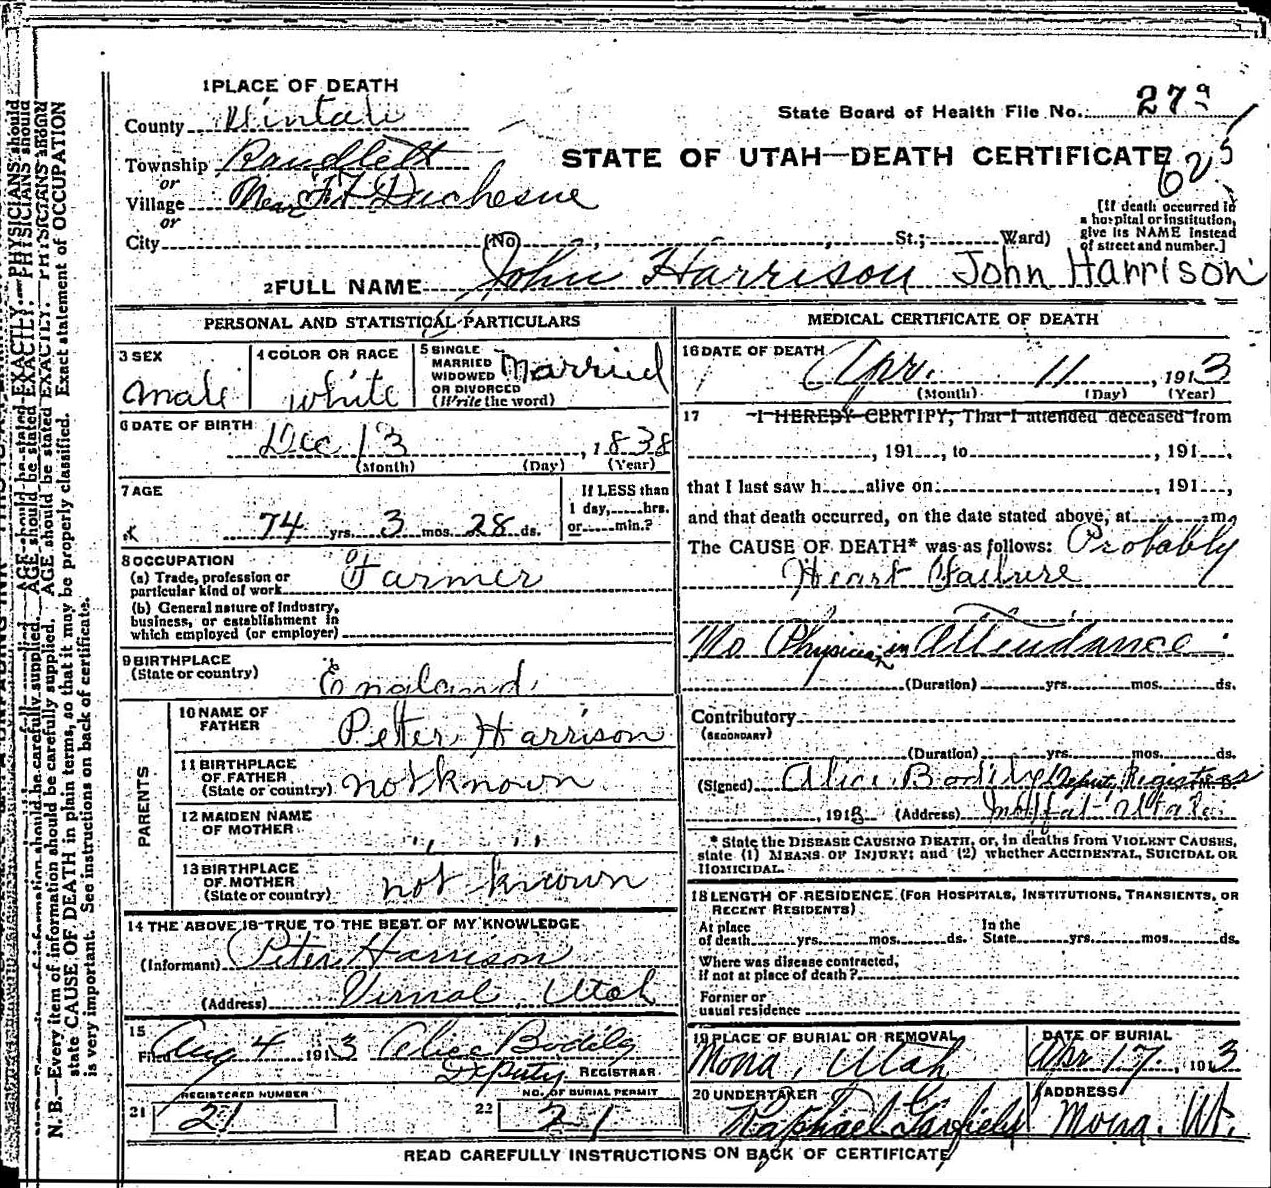 1 PLACE OF DEATH
State Board of Health File No. 279
County Uintah
STATE OF UTAH—DEATH CERTIFICATE
625
Township
or
Village Near Ft Duchesne
or
City (No. , St.; Ward)
[If death occurred in a hospital or institution, give its NAME instead of street and number.]
2 FULL NAME John Harrison John Harrison
PERSONAL AND STATISTICAL PARTICULARS
3 SEX
Male
4 COLOR OR RACE
White
5 SINGLE MARRIED WIDOWED OR DIVORCED (Write the word)
Married
6 DATE OF BIRTH
Dec 13, 1838
(Month) (Day) (Year)
7 AGE
74 yrs. 3 mos. 28 ds.
If LESS than 1 day, hrs. or min.?
8 OCCUPATION
(a) Trade, profession or particular kind of work Farmer
(b) General nature of Industry, business, or establishment in which employed (or employer)
9 BIRTHPLACE
(State or country) England
PARENTS
10 NAME OF FATHER Peter Harrison
11 BIRTHPLACE OF FATHER (State or country) not known
12 MAIDEN NAME OF MOTHER " "
13 BIRTHPLACE OF MOTHER (State or country) not known
14 THE ABOVE IS TRUE TO THE BEST OF MY KNOWLEDGE
(Informant) Peter Harrison
(Address) Vernal, Utah
15
Filed Aug 4 1913 Alice Bodily
Deputy REGISTRAR
REGISTERED NUMBER
21 21
NO. OF BURIAL PERMIT
22 21
MEDICAL CERTIFICATE OF DEATH
16 DATE OF DEATH
Apr. 11, 1913
(Month) (Day) (Year)
17 I HEREBY CERTIFY, That I attended deceased from
, 191 , to , 191 ,
that I last saw h alive on , 191 ,
and that death occurred, on the date stated above, at m.
The CAUSE OF DEATH* was as follows: Probably
Heart Failure
No Physician in Attendance
(Duration) yrs. mos. ds.
Contributory
(SECONDARY)
(Duration) yrs. mos. ds.
(Signed) Alice Bodily Deputy Registrar M. D.
, 1913 (Address) Moffat Utah
* State the DISEASE CAUSING DEATH, or, in deaths from VIOLENT CAUSES, state (1) MEANS OF INJURY; and (2) whether ACCIDENTAL, SUICIDAL OR HOMICIDAL.
18 LENGTH OF RESIDENCE (FOR HOSPITALS, INSTITUTIONS, TRANSIENTS, OR RECENT RESIDENTS)
At place of death yrs. mos. ds. In the State yrs. mos. ds.
Where was disease contracted, if not at place of death?
Former or usual residence
19 PLACE OF BURIAL OR REMOVAL
Mona, Utah
DATE OF BURIAL
Apr 17, 1913
20 UNDERTAKER
Raphael Garfield
ADDRESS
Mona. Ut.
READ CAREFULLY INSTRUCTIONS ON BACK OF CERTIFICATE
N. B.—Every item of information should be carefully supplied. AGE should be stated EXACTLY. PHYSICIANS should
state CAUSE OF DEATH in plain terms, so that it may be properly classified. Exact statement of OCCUPATION
is very important. See instructions on back of certificate.